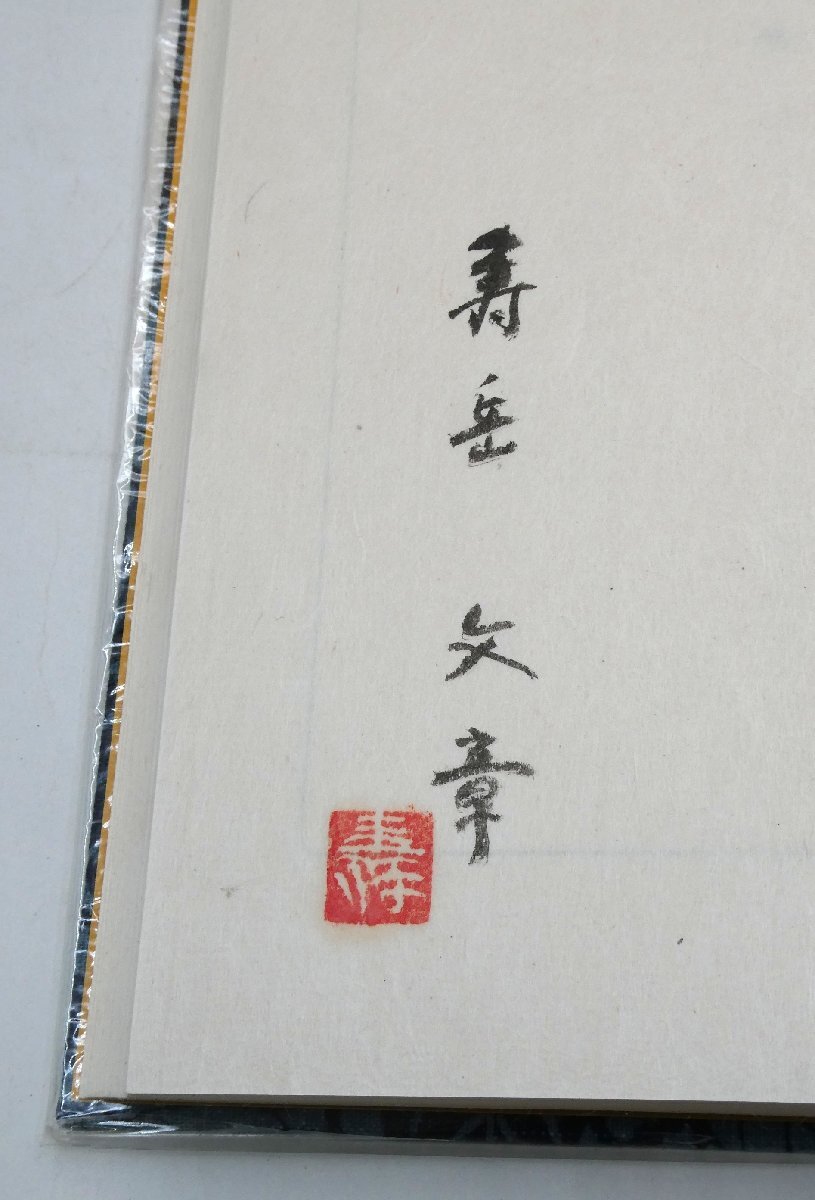 寿岳 文章
寿